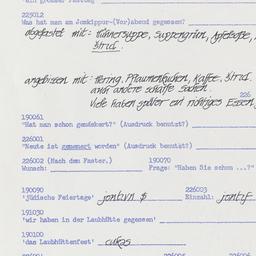 225012
Was hat man am Jomkippur-(Vor)abend gegessen?
abgefastet mit: Hühnersuppe, Suppengrün, Apfelsaft,
Brot.
angebissen mit: Hering, Pflaumenkuchen, Kaffee, Brot.
auch andere scharfe Sachen.
226
Viele haben später ein richtiges Essen
190061
"Hat man schon gemäkert?" (Ausdruck benutzt?)
226001
"Heute ist gemauert worden" (Ausdruck benutzt?)
226002 (Nach dem Fasten.) 190070
Wunsch: Frage: "Haben Sie schon ...?"
190090 226003
'jüdische Feiertage' jontuvn $ Einzahl: jontif
191030
'wir haben in der Laubhütte gegessen'
190100
'das Laubhüttenfest' cukos